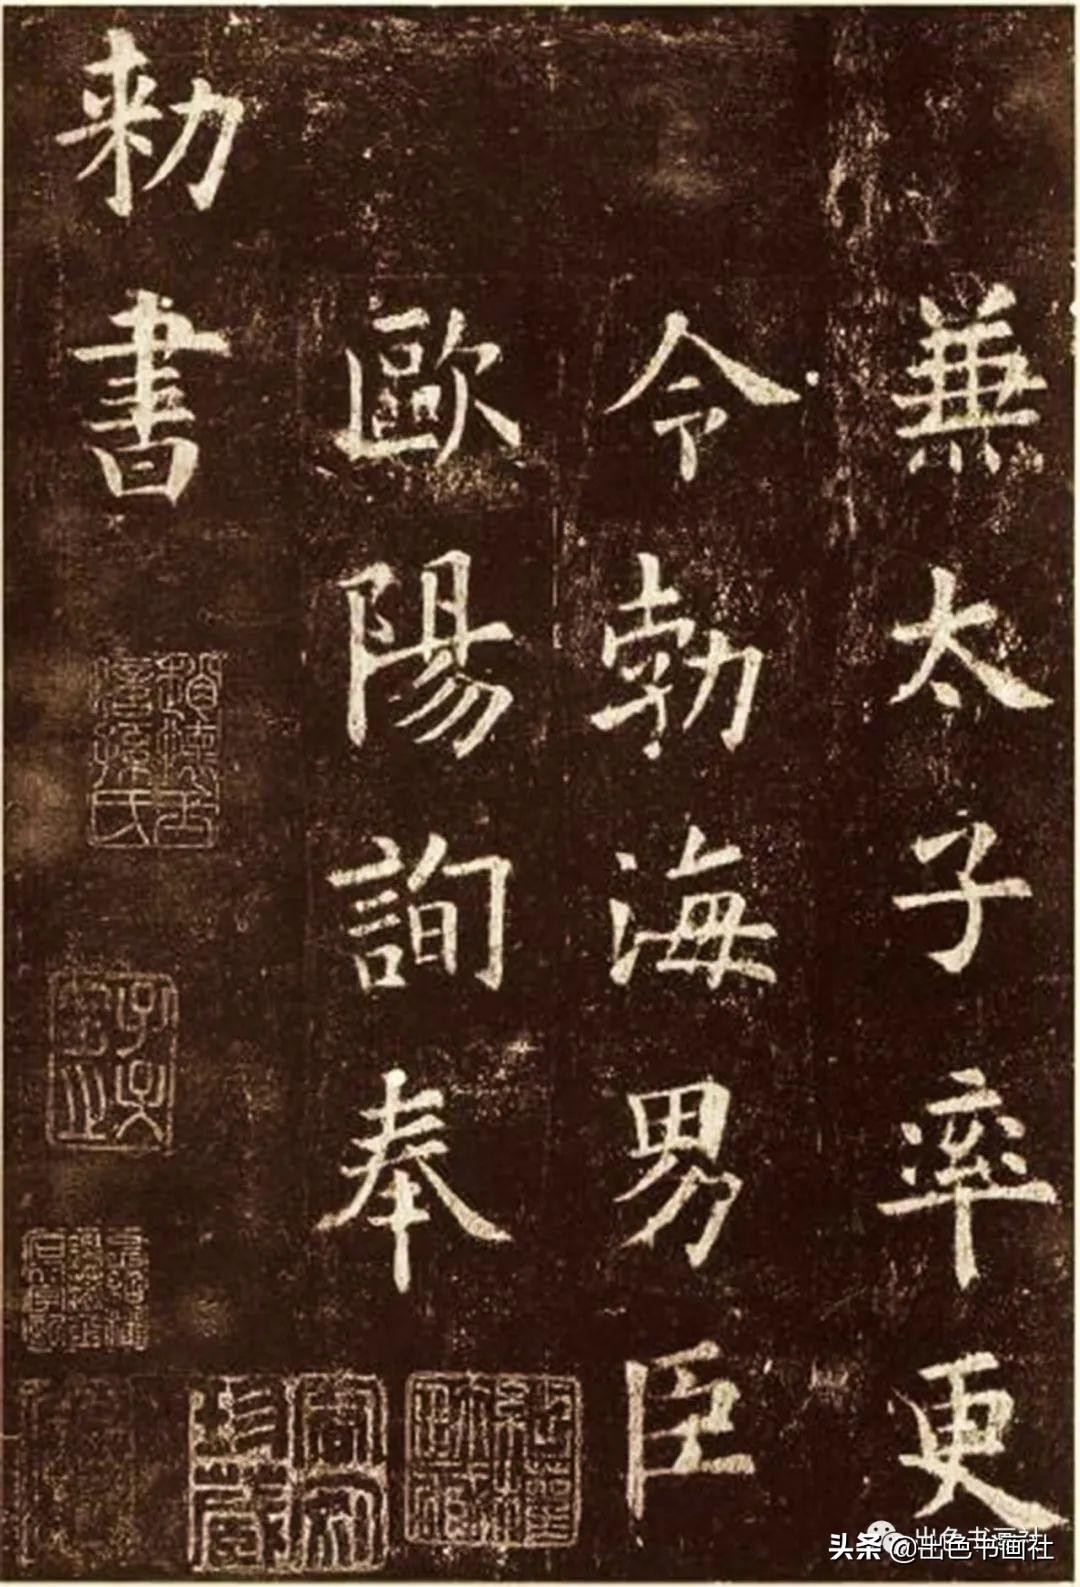 兼太子率更
令勃海男臣
歐陽詢奉
勑書
出色书画社
头条 @出色书画社